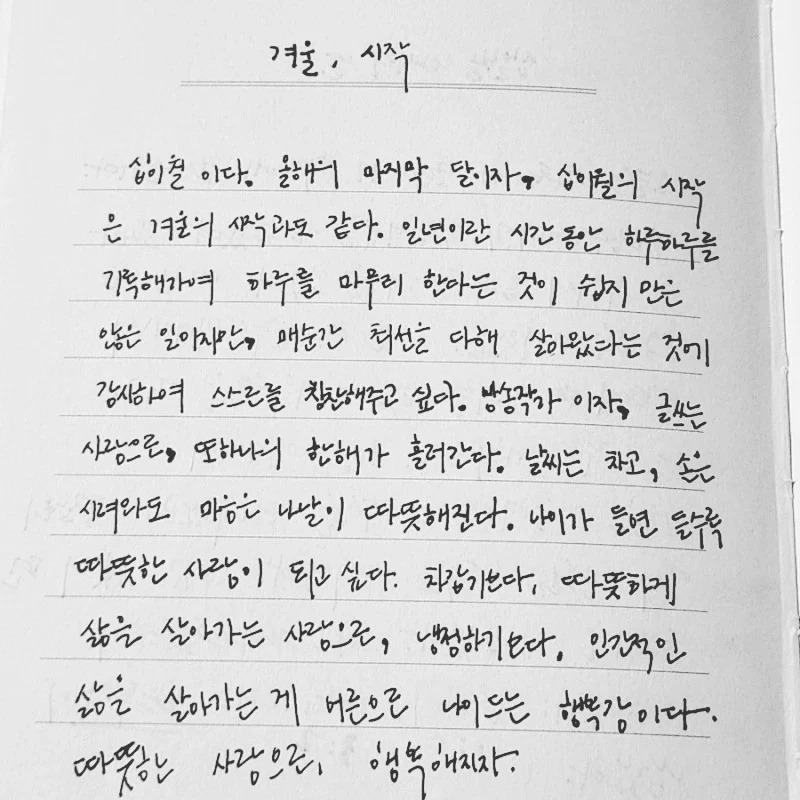 겨울, 시작
십이월이다. 올해의 마지막 달이자, 십이월의 시작
은 겨울의 시작과도 같다. 일년이란 시간동안 하루하루를
기록해가며 하루를 마무리 한다는 것이 쉽지 만은
않은 일이지만, 매순간 최선을 다해 살아왔다는 것에
감사하며 스스로를 칭찬해주고 싶다. 방송작가 이자, 글쓰는
사람으로, 또하나의 한해가 흘러간다. 날씨는 차고, 손은
시려와도 마음은 나날이 따뜻해진다. 나이가 들면 들수록
따뜻한 사람이 되고 싶다. 차갑기보다, 따뜻하게
삶을 살아가는 사람으로, 냉정하기보다, 인간적인
삶을 살아가는 게 어른으로 나이드는 행복감이다.
따뜻한 사람으로, 행복해지자.